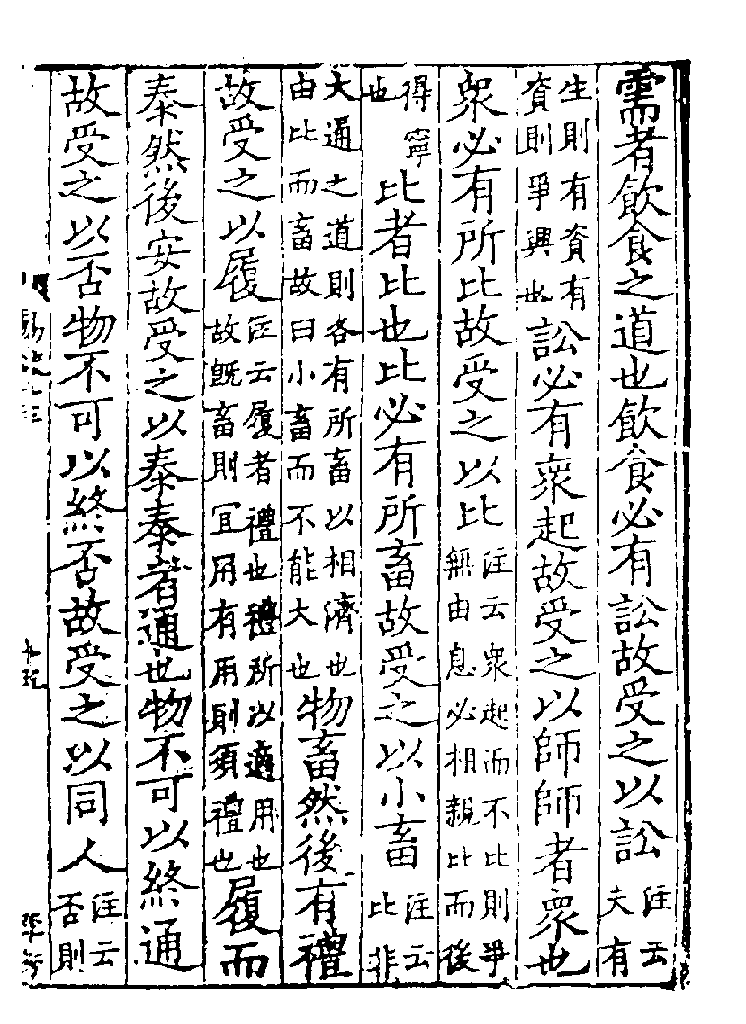 需者飲食之道也飲食必有訟故受之以訟注云夫有
生則有資有資則爭興也訟必有衆起故受之以師師者衆也
衆必有所比故受之以比注云衆起而不比則爭無由息必相親比而後
得寧也比者比也比必有所畜故受之以小畜注云比非
大通之道則各有所畜以相濟也由比而畜故曰小畜而不能大也物畜然後有禮
故受之以履注云履者禮也禮所以適用也故旣畜則宜用有用則須禮也履而
泰然後安故受之以泰泰者通也物不可以終通
故受之以否物不可以終否故受之以同人注云否則